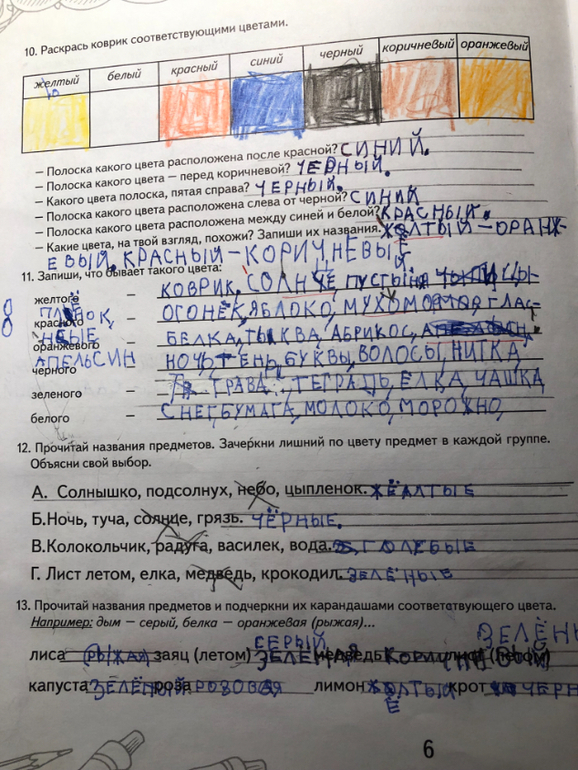 10. Раскрась коврик соответствующими цветами.
желтый белый красный синий черный коричневый оранжевый
– Полоска какого цвета расположена после красной? СИНИЙ.
– Полоска какого цвета – перед коричневой? ЧЁРНЫЙ.
– Какого цвета полоска, пятая справа? ЧЕРНЫЙ.
– Полоска какого цвета расположена слева от черной? СИНИЙ
– Полоска какого цвета расположена между синей и белой? КРАСНЫЙ.
– Какие цвета, на твой взгляд, похожи? Запиши их названия. ЖЁЛТЫЙ – ОРАНЖ-
ЕВЫЙ, КРАСНЫЙ – КОРИЧНЕВЫЙ
11. Запиши, что бывает такого цвета:
желтого – КОВРИК, СОЛНЧЕ, ПУСТЫНЯ
красного – ОГОНЁК, ЯБЛОКО, МУХОМОР,
оранжевого – БЕЛКА, ТЫКВА, АБРИКОС,
АПЕЛЬСИН
черного – НОЧЬ, ТЕНЬ, БУКВЫ, ВОЛОСЫ, НИТКА,
зеленого – ТРАВА, ТЕТРАДЬ, ЁЛКА, ЧАШКА
белого – СНЕГ, БУМАГА, МОЛОКО, МОРОЖНО,
12. Прочитай названия предметов. Зачеркни лишний по цвету предмет в каждой группе.
Объясни свой выбор.
А. Солнышко, подсолнух, небо, цыпленок. ЖЁАЛТЫЕ
Б.Ночь, туча, солнце, грязь. ЧЁРНЫЕ.
В.Колокольчик, радуга, василек, вода. ГОЛУБЫЕ
Г. Лист летом, елка, медведь, крокодил. ЗЕЛЁНЫЕ
13. Прочитай названия предметов и подчеркни их карандашами соответствующего цвета.
Например: дым – серый, белка – оранжевая (рыжая)...
СЕРЫЙ ЗЕЛЁНЫ
лиса РЫЖАЯ заяц (летом) медведь лист (летом)
капуста ЗЕЛЁНЫЙ роза РОЗОВАЯ лимон ЖОЛТЫЙ крот ЧЕРН
Ё
6